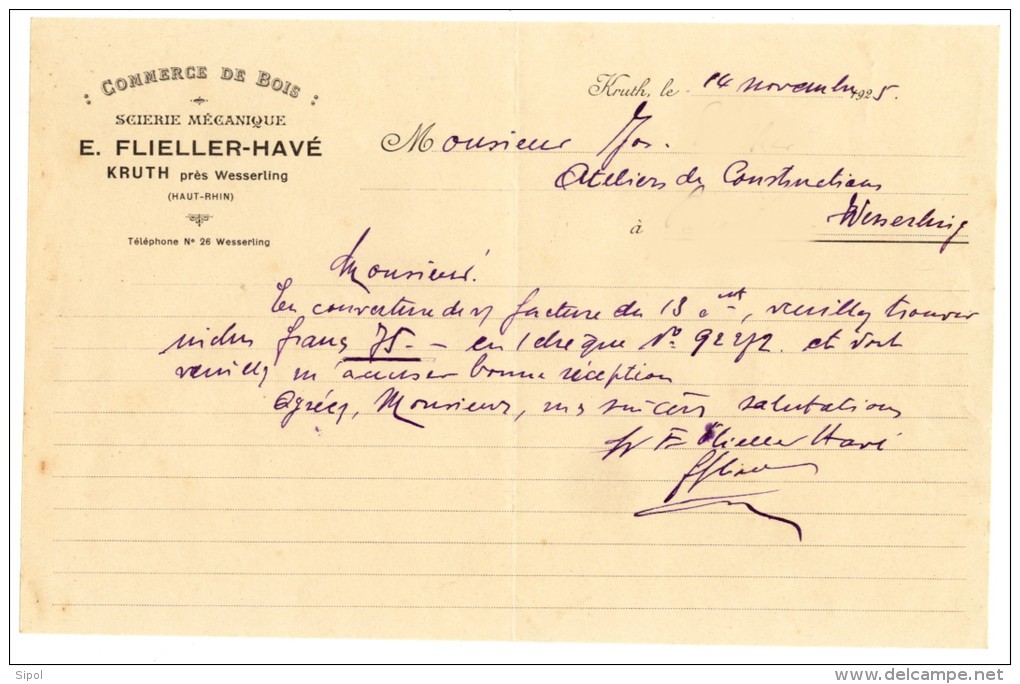 COMMERCE DE BOIS
SCIERIE MÉCANIQUE
E. FLIELLER-HAVÉ
KRUTH près Wesserling
(HAUT-RHIN)
Téléphone Nº 26 Wesserling
Kruth, le 14 novembre 1925.
Monsieur Jos.
Ateliers de Constructions
à Wesserling
Monsieur.
En couverture de v/ facture du 13 ct, veuillez trouver
inclus francs 75.- en 1 chèque Nº 92272. et dont
veuillez m'accuser bonne réception
Agréez, Monsieur, mes sincères salutations
Flieller Havé
Sipol
www.delcampe.net